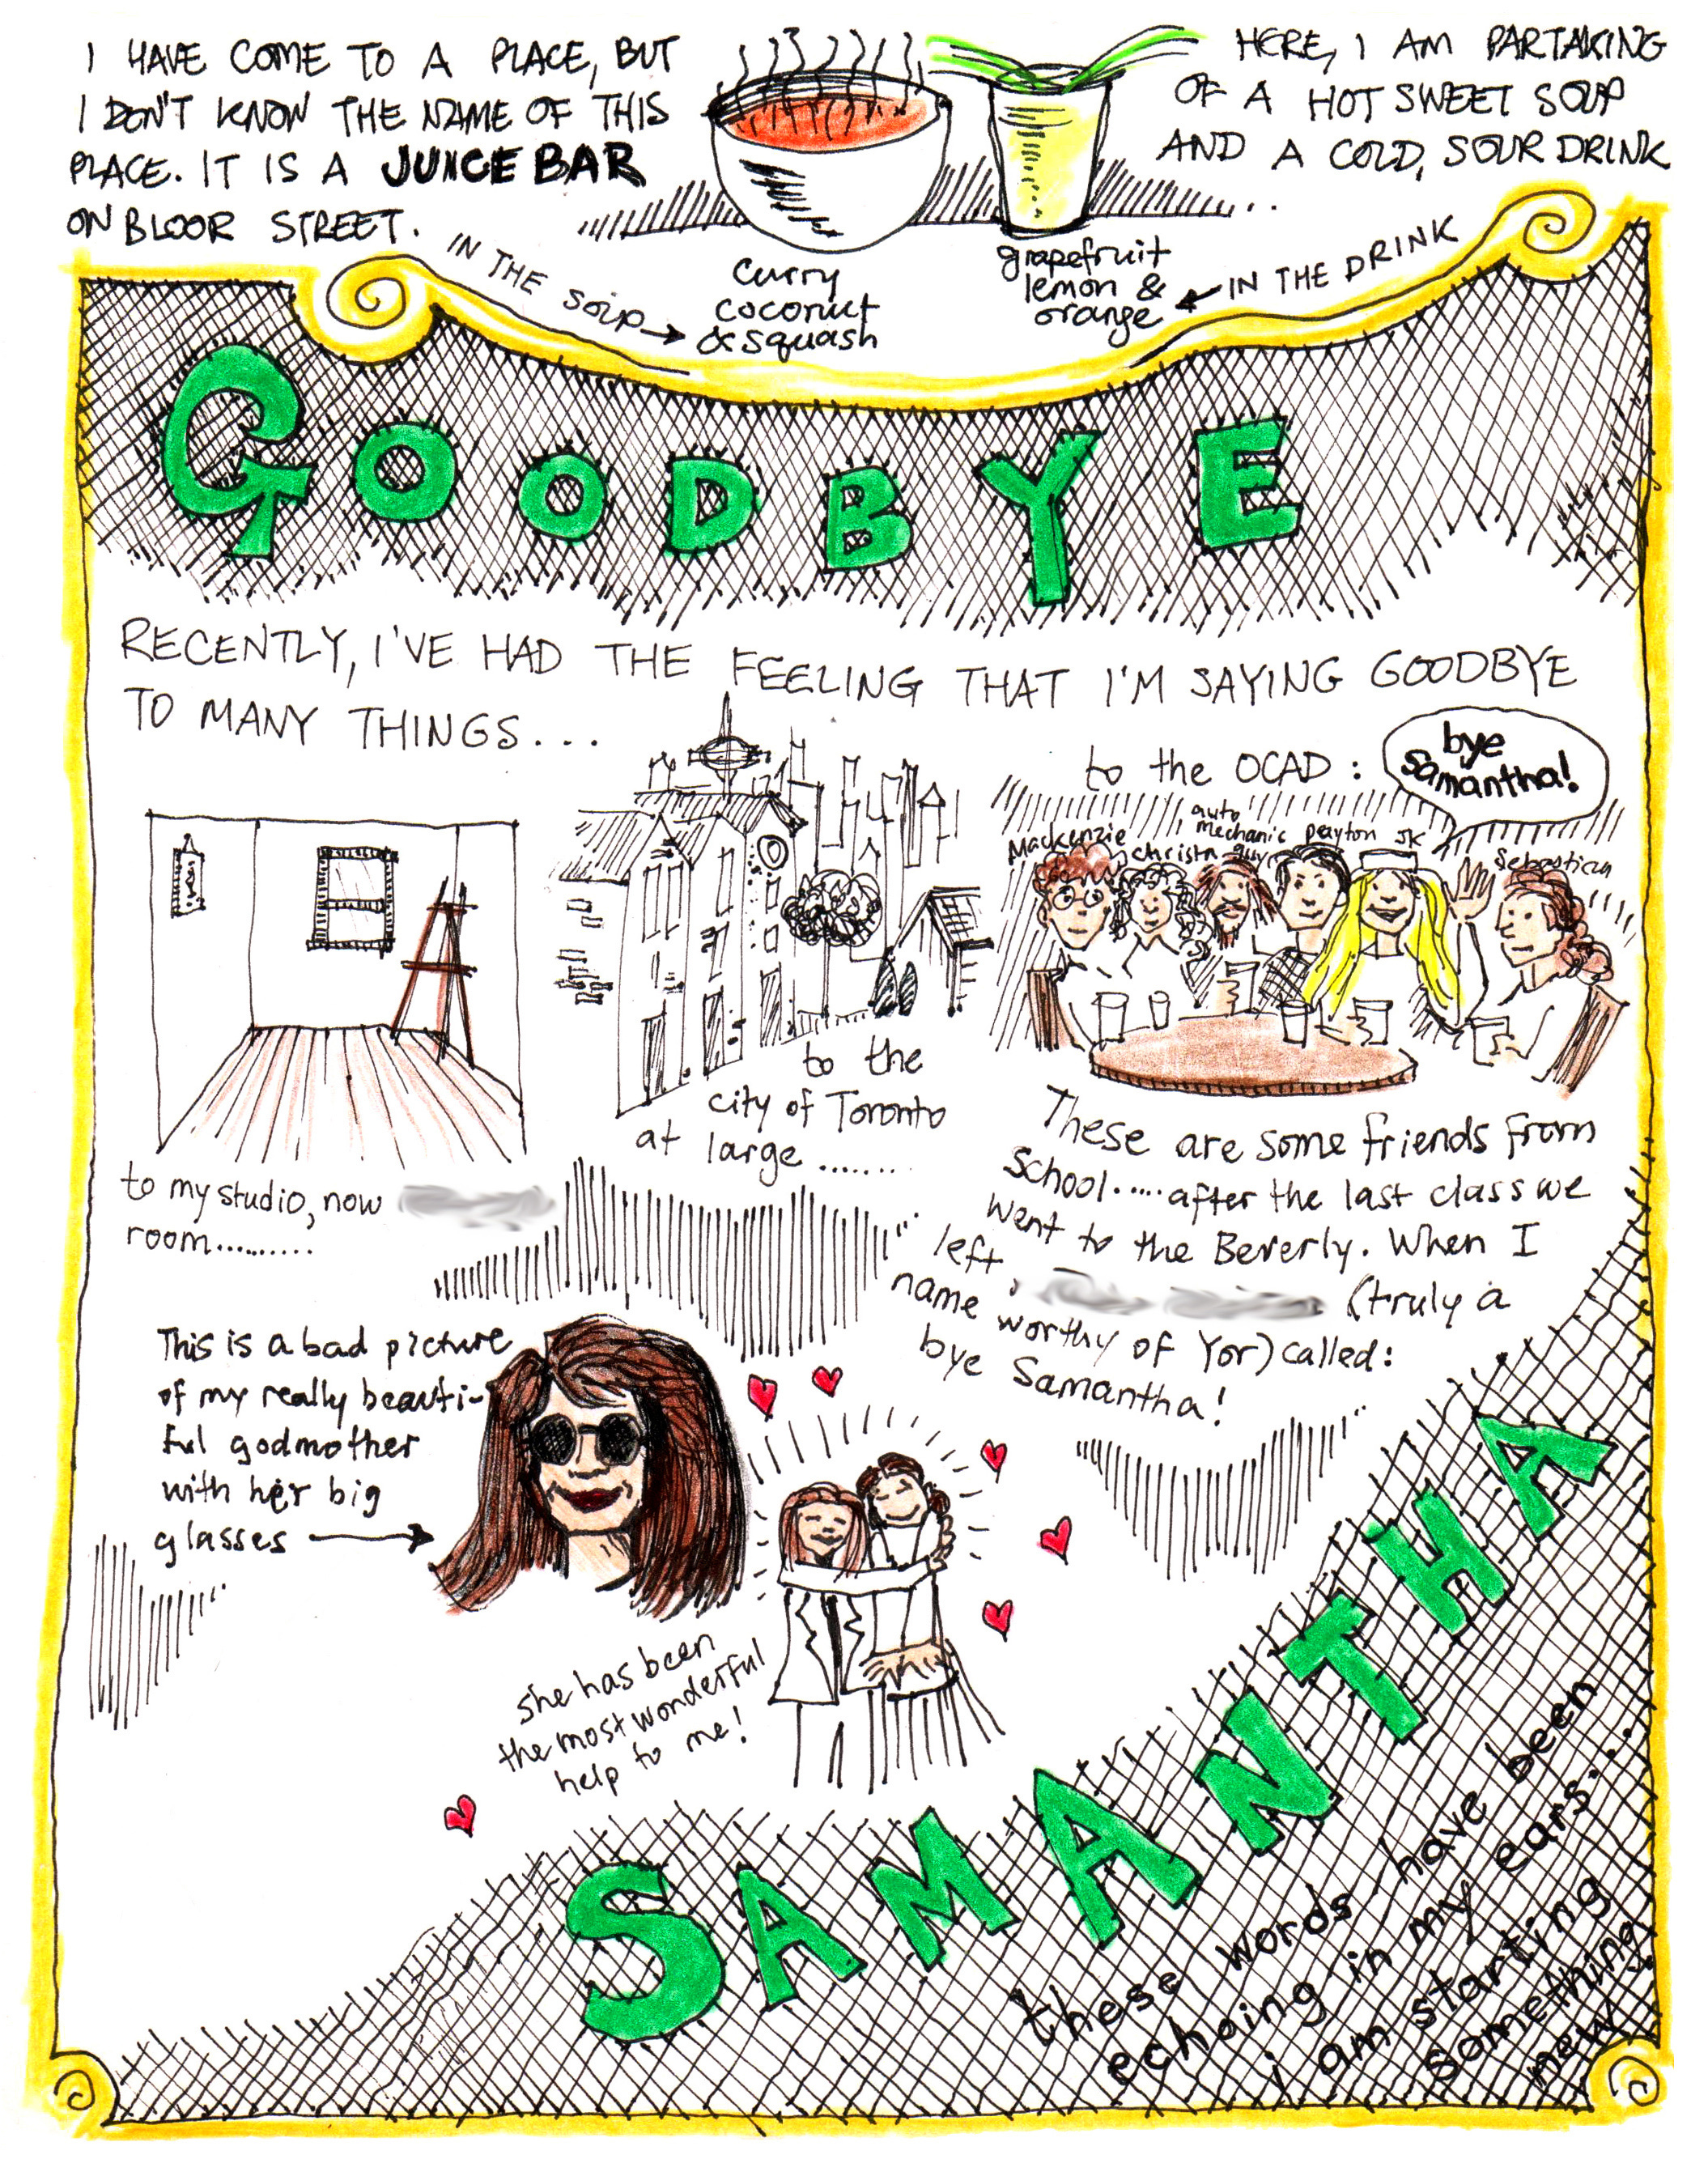 I HAVE COME TO A PLACE, BUT
I DON'T KNOW THE NAME OF THIS
PLACE. IT IS A JUICE BAR
ON BLOOR STREET.
HERE, I AM PARTAKING
OF A HOT SWEET SOUP
AND A COLD, SOUR DRINK
IN THE SOUP
curry
coconut
& squash
grapefruit
lemon &
orange
IN THE DRINK
GOODBYE
RECENTLY, I'VE HAD THE FEELING THAT I'M SAYING GOODBYE
TO MANY THINGS...
to my studio, now
room..........
to the
city of Toronto
at large ........
to the OCAD:
bye
Samantha!
Mackenzie
Christa
auto
mechanic
guy
peyton
JK
Sebastian
These are some friends from
School..... after the last class we
went to the Beverly. When I
left,
(truly a
name worthy of Yor) called:
bye Samantha!
This is a bad picture
of my really beauti-
ful godmother
with her big
glasses
she has been
the most wonderful
help to me!
SAMANTHA
these words have been
echoing in my ears....
i am starting
something
new